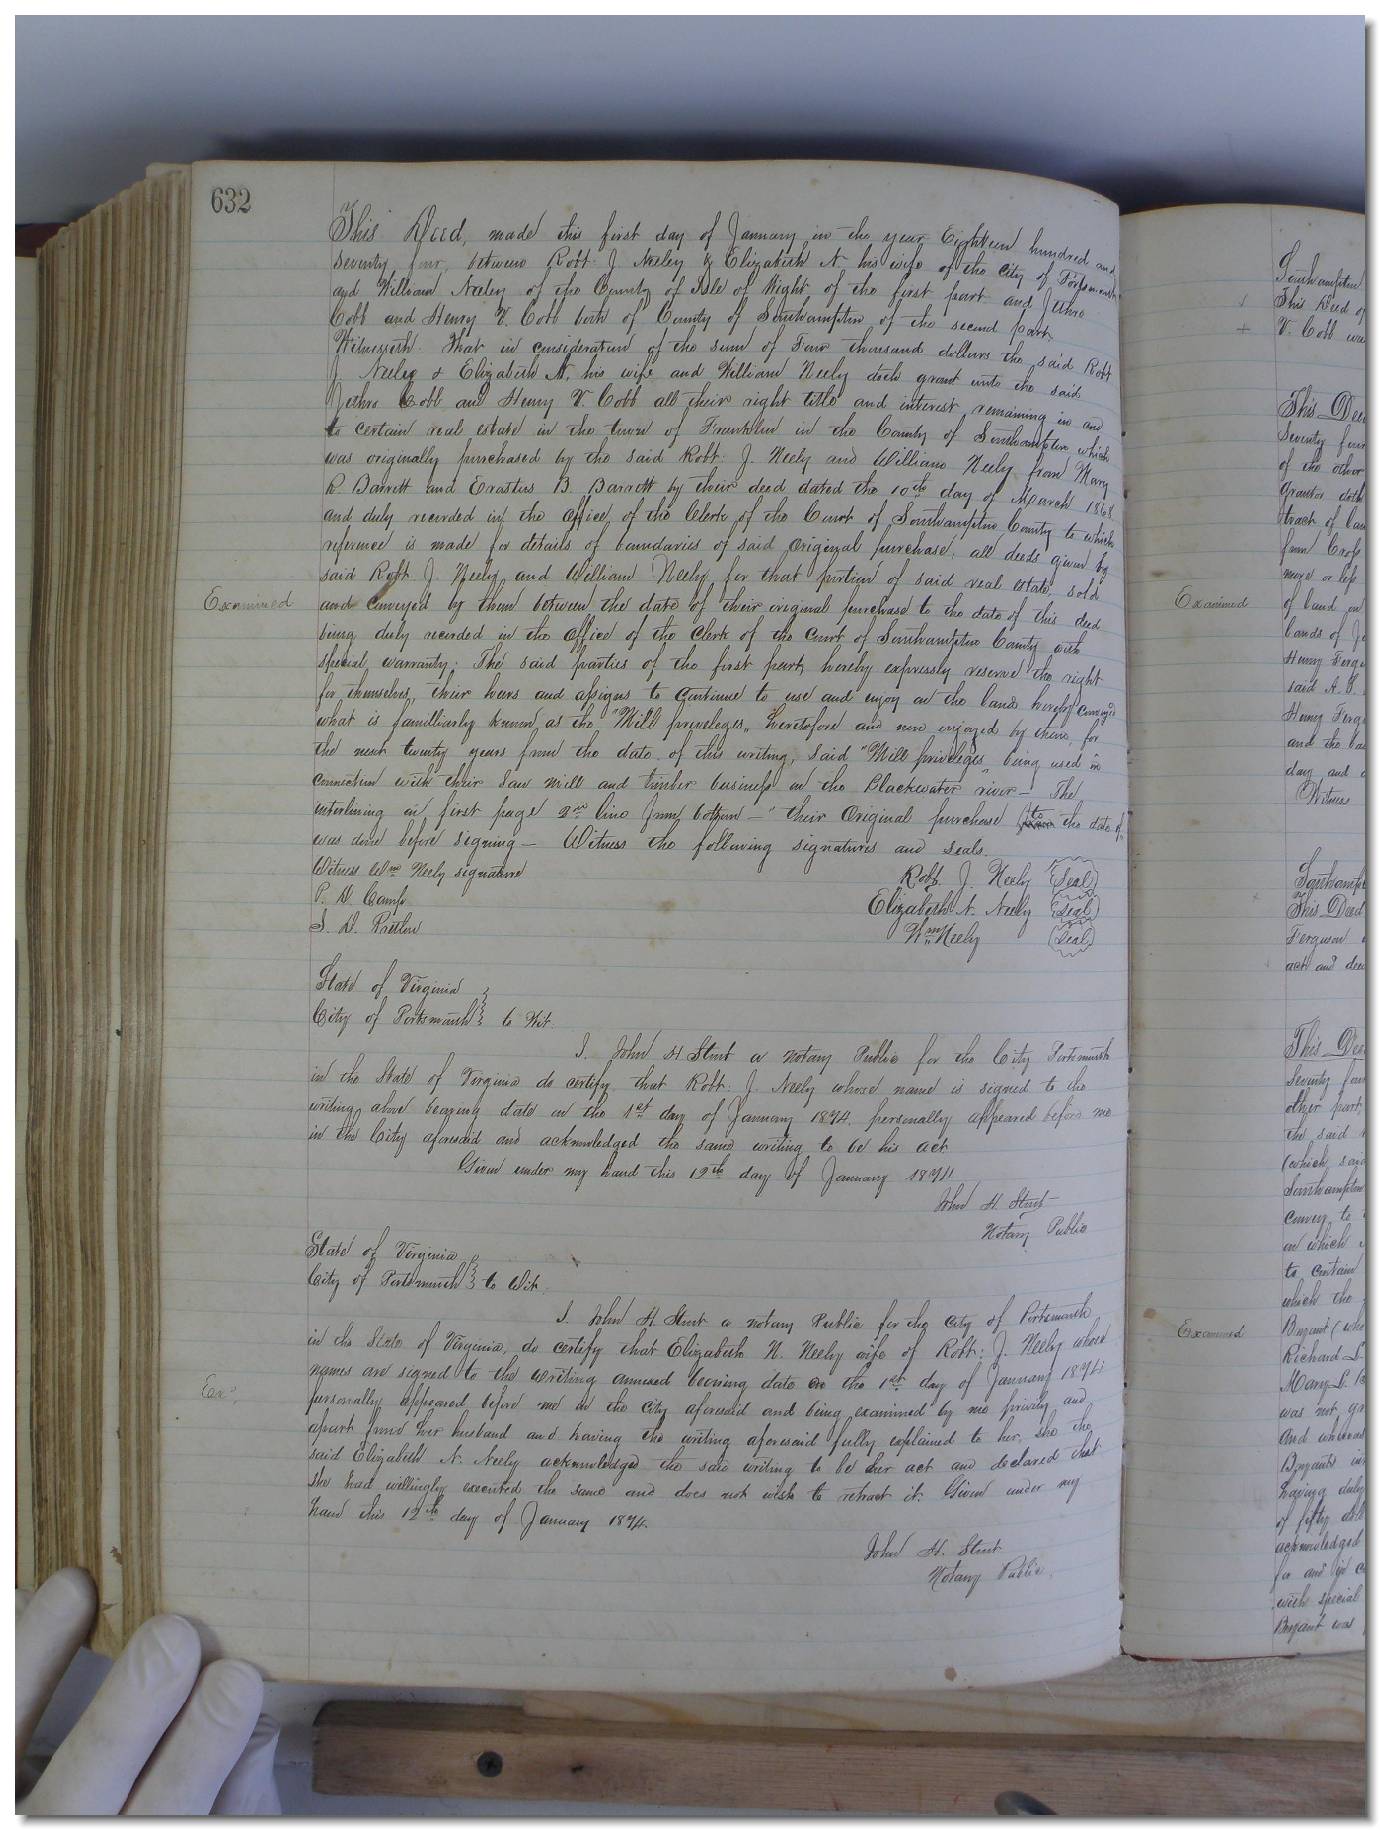 632
This Deed, made this first day of January in the year Eighteen hundred and
Seventy four, between Robt. J. Neeley & Elizabeth N. his wife of the City of Portsmouth
and William Neeley of the County of Isle of Wight of the first part and Jethro
Cobb and Henry V. Cobb both of County of Southampton of the second part
Witnesseth. That in consideration of the sum of Four thousand dollars the said Robt
J. Neeley & Elizabeth N. his wife and William Neely doth grant unto the said
Jethro Cobb and Henry V. Cobb all their right title and interest remaining in and
to certain real estate in the town of Franklin in the County of Southampton which
was originally purchased by the said Robt. J. Neely and William Neely from Mary
R. Barrett and Erastus B. Barrett by their deed dated the 10th day of March 1868
and duly recorded in the Office of the Clerk of the Court of Southampton County to which
reference is made for details of boundaries of said original purchase, all deeds given by
said Robt. J. Neely and William Neely for that portion of said real estate, sold
and conveyed by them between the date of their original purchase to the date of this deed
being duly recorded in the Office of the Clerk of the Court of Southampton County with
special warranty. The said parties of the first part, hereby expressly reserve the right
for themselves, their heirs and assigns to continue to use and enjoy on the land hereby conveyed
what is familliarly known as the "Mill priveleges" heretofore and now enjoyed by them, for
the next twenty years from the date of this writing, said "Mill privileges" being used in
connection with their Saw mill and timber business on the Blackwater river — The
interlining on first page 2nd line from bottom — "their Original purchase to the date of"
was done before signing — Witness the following signatures and seals.
Witness Wm Neely signature
P. D. Camp
S. D. Pretlow
Robt. J. Neely (Seal)
Elizabeth N. Neely (Seal)
Wm Neely (Seal)
Examined
State of Virginia
City of Portsmouth } to Wit.
I. John H Stunt a Notary Public for the City Portsmouth
in the State of Virginia do certify, that Robt: J. Neely whose name is signed to the
writing above bearing date on the 1st day of January 1874, personally appeared before me
in the City aforesaid and acknowledged the same writing to be his act
Given under my hand this 12th day of January 1874
John H. Stunt
Notary Public
State of Virginia
City of Portsmouth } to Wit.
I. John H. Stunt a Notary Public for the City of Portsmouth
in the State of Virginia, do certify that Elizabeth N. Neely wife of Robt: J. Neely whose
names are signed to the writing annexed bearing date on the 1st day of January 1874
personally appeared before me in the City aforesaid and being examined by me privily and
apart from her husband and having the writing aforesaid fully explained to her, she the
said Elizabeth N. Neely acknowledged the said writing to be her act and declared that
she had willingly executed the same and does not wish to retract it: Given under my
hand this 12th day of January 1874.
Exd.
John H. Stunt
Notary Public.
Southampton
This Deed of
V. Cobb was
This Deed
Seventy four
of the other
grantor doth
tract of land
from Cross
more or less
of land on
lands of
Henry Ferg
said A. S.
Henry Ferg
and the
day and
Witness
Examined
Southamp
This Deed
Ferguson
act and deed
This Deed
Seventy four
other part,
the said
(which said
Southampton
convey to
on which
to certain
which the
Bryant (who
Richard L.
Mary L.
was not
And whereas
Bryant
having duly
of fifty
acknowledged
for and in
with special
Bryant was
Examined